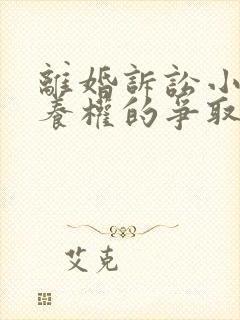 離婚訴訟小
養權的爭取
艾克